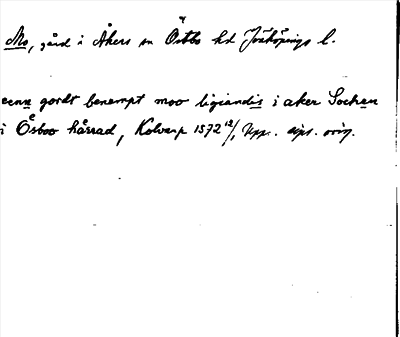 Mo, gård i Åkers sn Östbo hd Jönköpings l.
eenn gordt benempt moo ligiandis i aker Sochen
i Ôsboo hårrad, Kolverp 1572 12/1 Upps. dipl. orig.